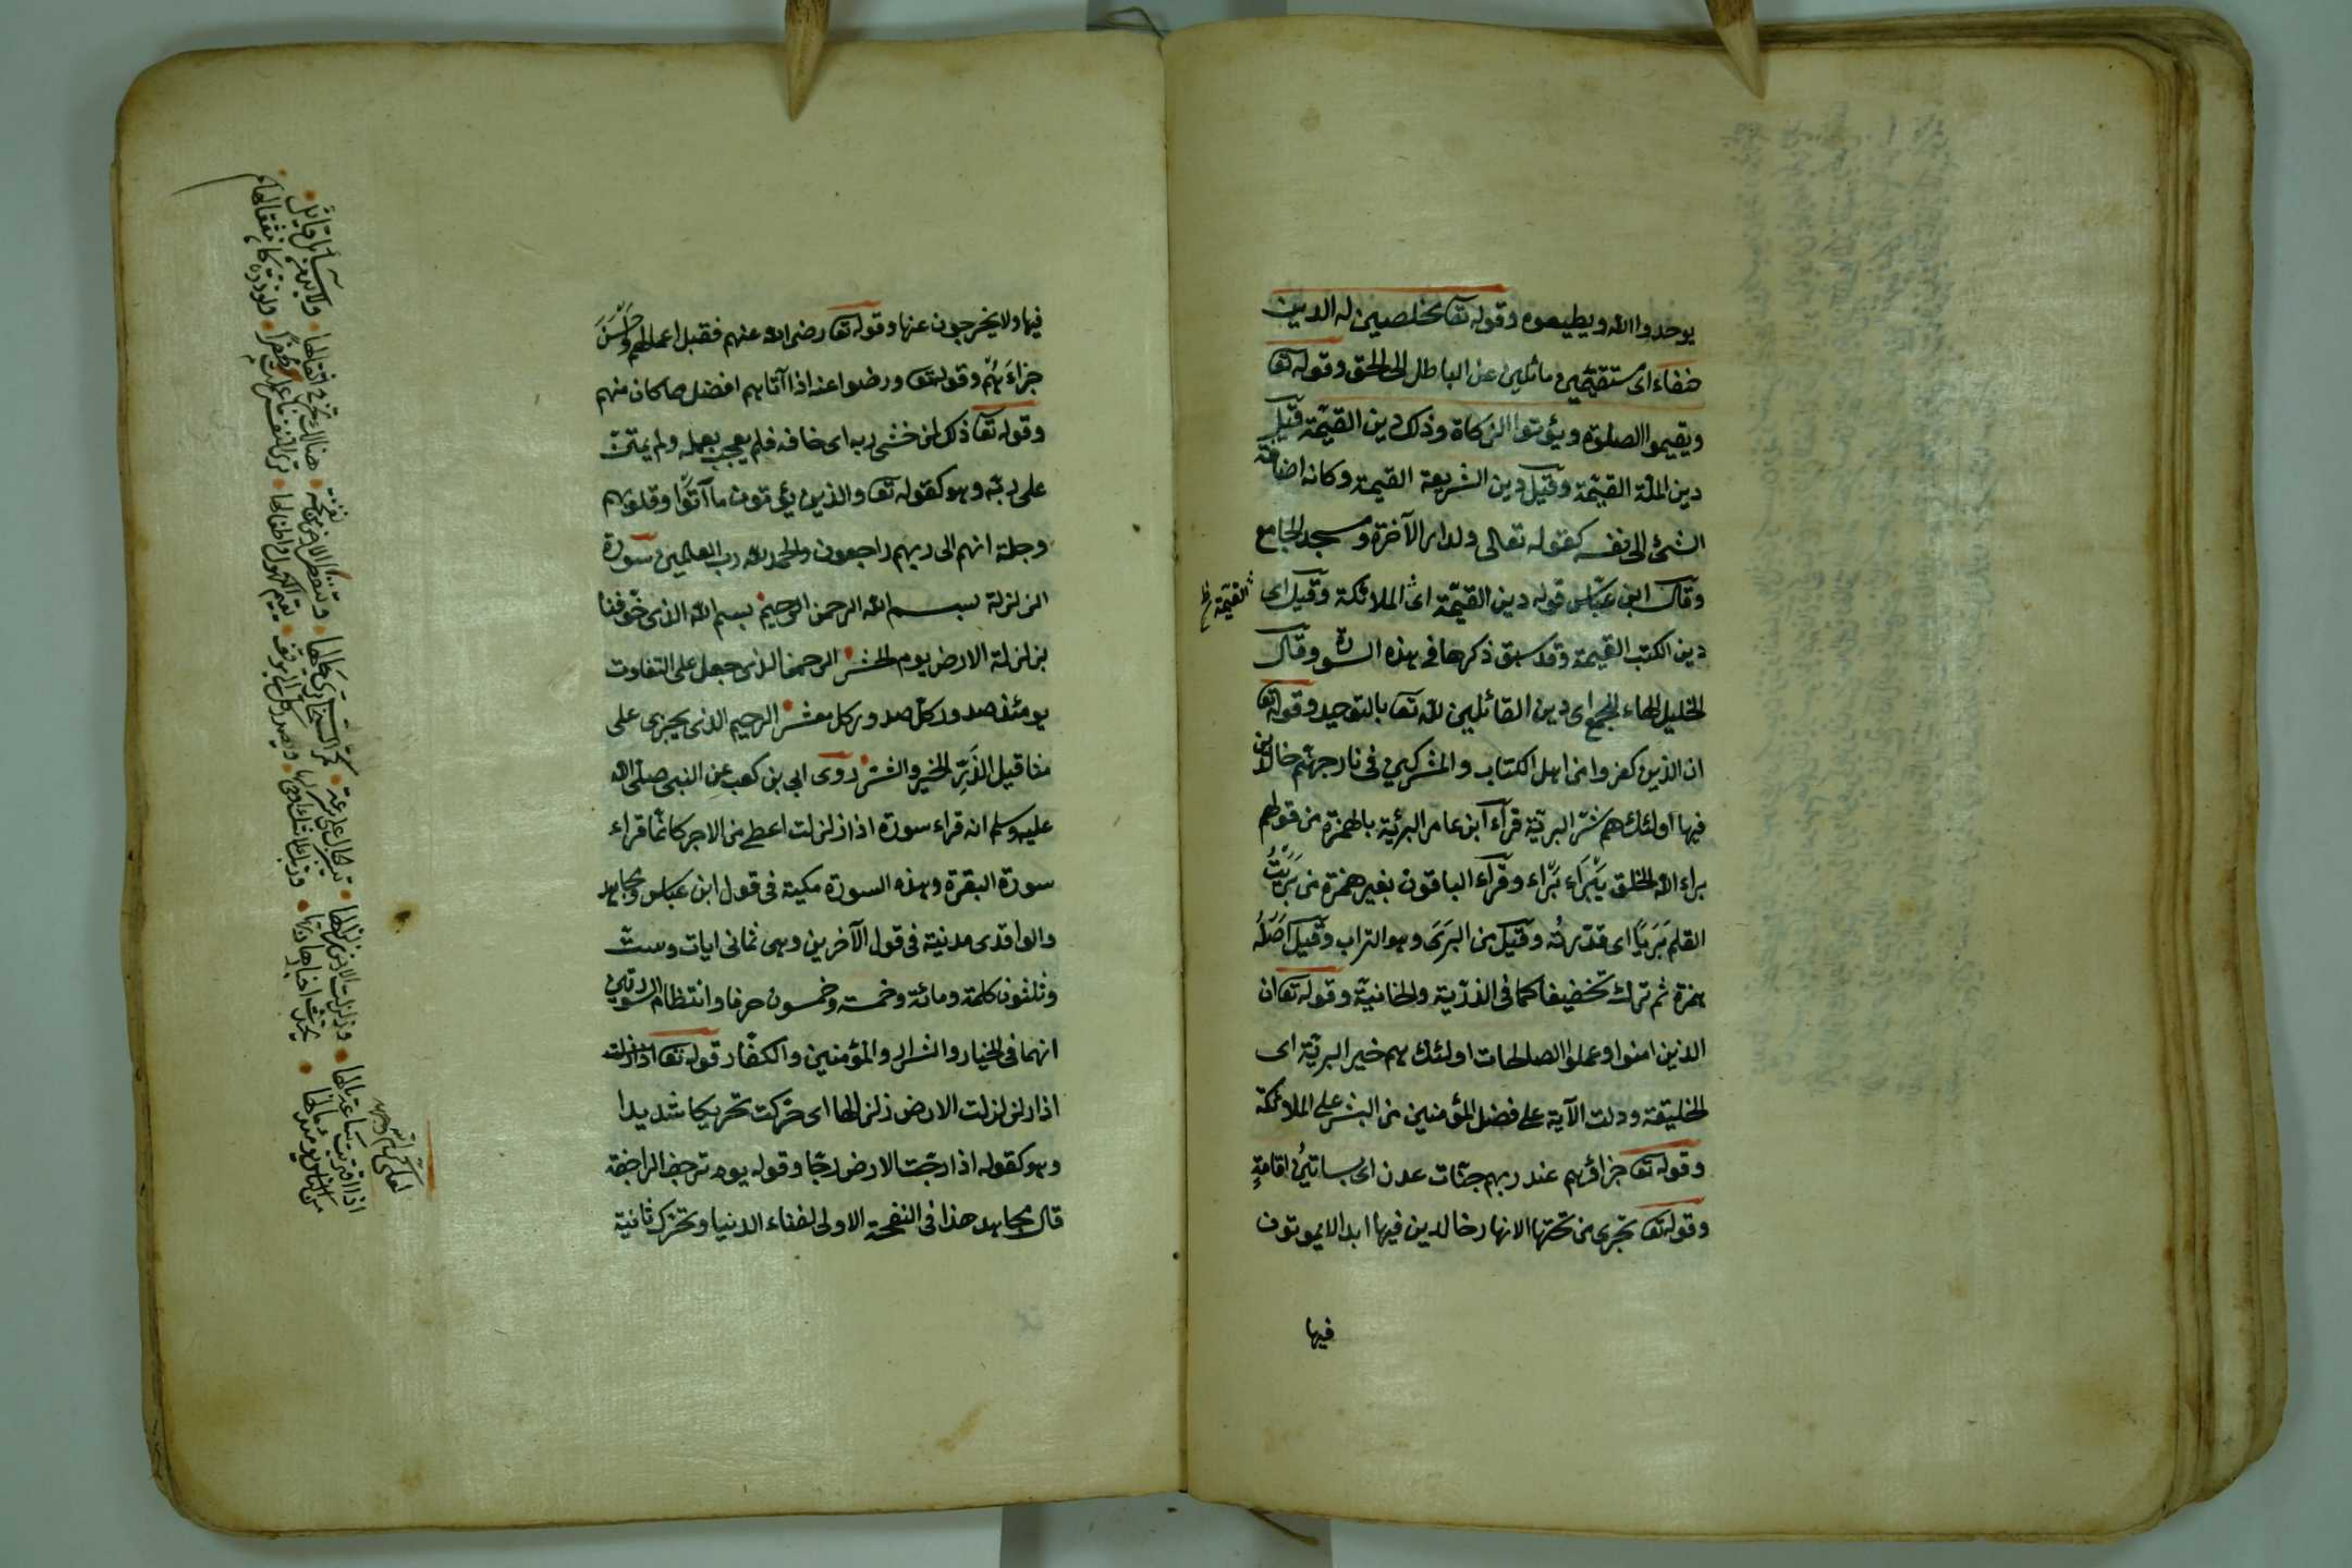 يوحدوا الله ويطيعوه وقوله تعا مخلصين له الدين
حنفاء اى مستقيمين مائلين عن الباطل الى الحق وقوله تعا
ويقيموا الصلوة ويؤتوا الزكاة وذلك دين القيمة قيل
دين الملة القيمة وقيل دين الشريعة القيمة وكانه اضافة
الشئ الى نفسه كقوله تعالى ولدار الآخرة ومسجد الجامع
وقال ابن عباس قوله دين القيمة اى الملائكة وقيل اى
القيمة
دين الكتب القيمة وقد سبق ذكرها فى هذه السورة وقال
الخليل الهاء للجمع اى دين القائلين لله تعا بالتوحيد وقوله تعا
ان الذين كفروا من اهل الكتاب والمشركين فى نار جهنم خالدين
فيها اولئك هم شر البرية قرأ ابن عامر البرئية بالهمزة من قولهم
براء الله الخلق يَبْرَاء بَرْاء وقرآء الباقون بغير همزة من بَرَيْتُ
القلم بَرْيًا اى قدّرتُه وقيل من البَرَى وهو التراب وقيل اَصْلُهُ
همزة ثم ترك تخفيفا كما فى الذرّية والخانية وقوله تعا ان
الذين امنوا وعملوا الصلحات اولئك هم خير البريّة اى
الخليقة ودلت الآية على فضل المؤمنين من البشر على الملائكة
وقوله تعا جزاؤهم عند ربهم جنّات عدن اى بساتين اقامةٍ
وقوله تعا تجرى من تحتها الانهار خالدين فيها ابدا لا يموتون
فيها
فيها ولا يخرجون عنها وقوله تعا رضى الله عنهم فقبل اعمالهم وحَسَّنَ
جزاءَهُم وقوله تعا ورضوا عنه اذا آتاهم افضل مما كان منهم
وقوله تعا ذلك لمن خشى ربه اى خافه فلم يعجب بعمله ولم يمتنّ
على ربّه وهو كقوله تعا والذين يؤتون ما آتَوْا وقلوبهم
وجلة انهم الى ربهم راجعون والحمد لله رب العالمين سورة
الزلزلة بسم الله الرحمن الرحيم بسم الله الذى خَوَّفنا
بزلزلة الارض يوم الحشر الرحمن الذى جعل على التفاوت
يومئذ صدور كل صدور كل معشر الرحيم الذى يجزى على
مثاقيل الذَرِّ الخير والشرّ روى ابى بن كعب عن النبى صلّى الله
عليه وسلم انه قراء سورة اذا زلزلت اعطى من الاجر كانما قراء
سورة البقرة وهذه السورة مكية فى قول ابن عباس ومجاهد
والواقدى مدنية فى قول الآخرين وهى ثمانى ايات وستّ
وثلثون كلمة ومائة وخمسة وخمسون حرفا وانتظام السورتين
انهما فى الخيار والشرار والمؤمنين والكفّار قوله تعا اذا زلزلت
اذا زلزلت الارض زلزالها اى حرّكت تحريكا شديدا
وهو كقوله اذا رجّت الارض رجّا وقوله يوم ترجف الراجفة
قال مجاهد هذا فى النفخة الاولى لفناء الدنيا وتحرّك ثانية
اذا اقتربت ساعة يالها • وزلزلت الارض زلزالها •